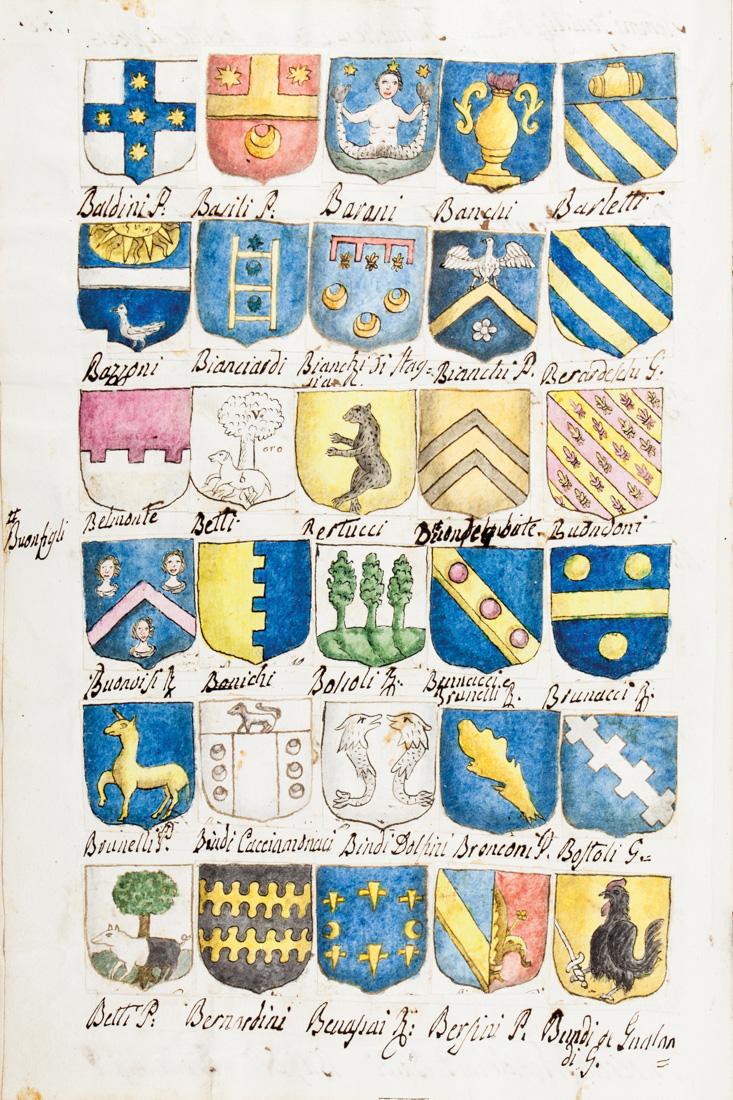 Baldini P. Basili P. Barani Banchi Barletti
Bazzoni Bianciardi Bianchi di Stag= Bianchi P. Berardeschi G.
oro
Belmonte Betti Bertucci Buondelmonte Buondoni
Buonfigli
Buonvisi Bonichi Bossoli Brunacci e Brunacci
Brunetti
Brunelli P. Bindi Cacciamonaci Bindi Dolfini Bronconi P. Bostoli G=
Betti P: Bernardini Bersini P. Bindi
di G.